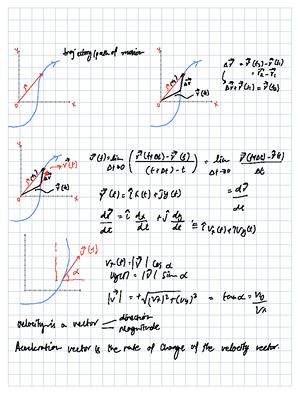 trajectory/path of motion
Y
X
r⃗
Y
X
r⃗(t₁)
Δr⃗
r⃗(t₂)
Δr⃗ = r⃗(t₂) - r⃗(t₁)
= r⃗₂ - r⃗₁
Δr⃗ + r⃗(t₁) = r⃗(t₂)
Y
X
v⃗(t)
r⃗(t)
v⃗(t) = lim Δt→0 (r⃗(t+Δt) - r⃗(t)) / ((t+Δt) - t) = lim Δt→0 (r⃗(t+Δt) - r⃗(t)) / Δt
= dr⃗/dt
r⃗(t) = î x(t) + ĵ y(t)
dr⃗/dt = î dx/dt + ĵ dy/dt = î Vx(t) + ĵ Vy(t)
v⃗(t)
α
Vx(t) = |v⃗| cos α
Vy(t) = |v⃗| sin α
|v⃗| = +√((Vx)² + (Vy)²)
tan α = Vy/Vx
velocity is a vector
direction
magnitude
Acceleration vector is the rate of change of the velocity vector.